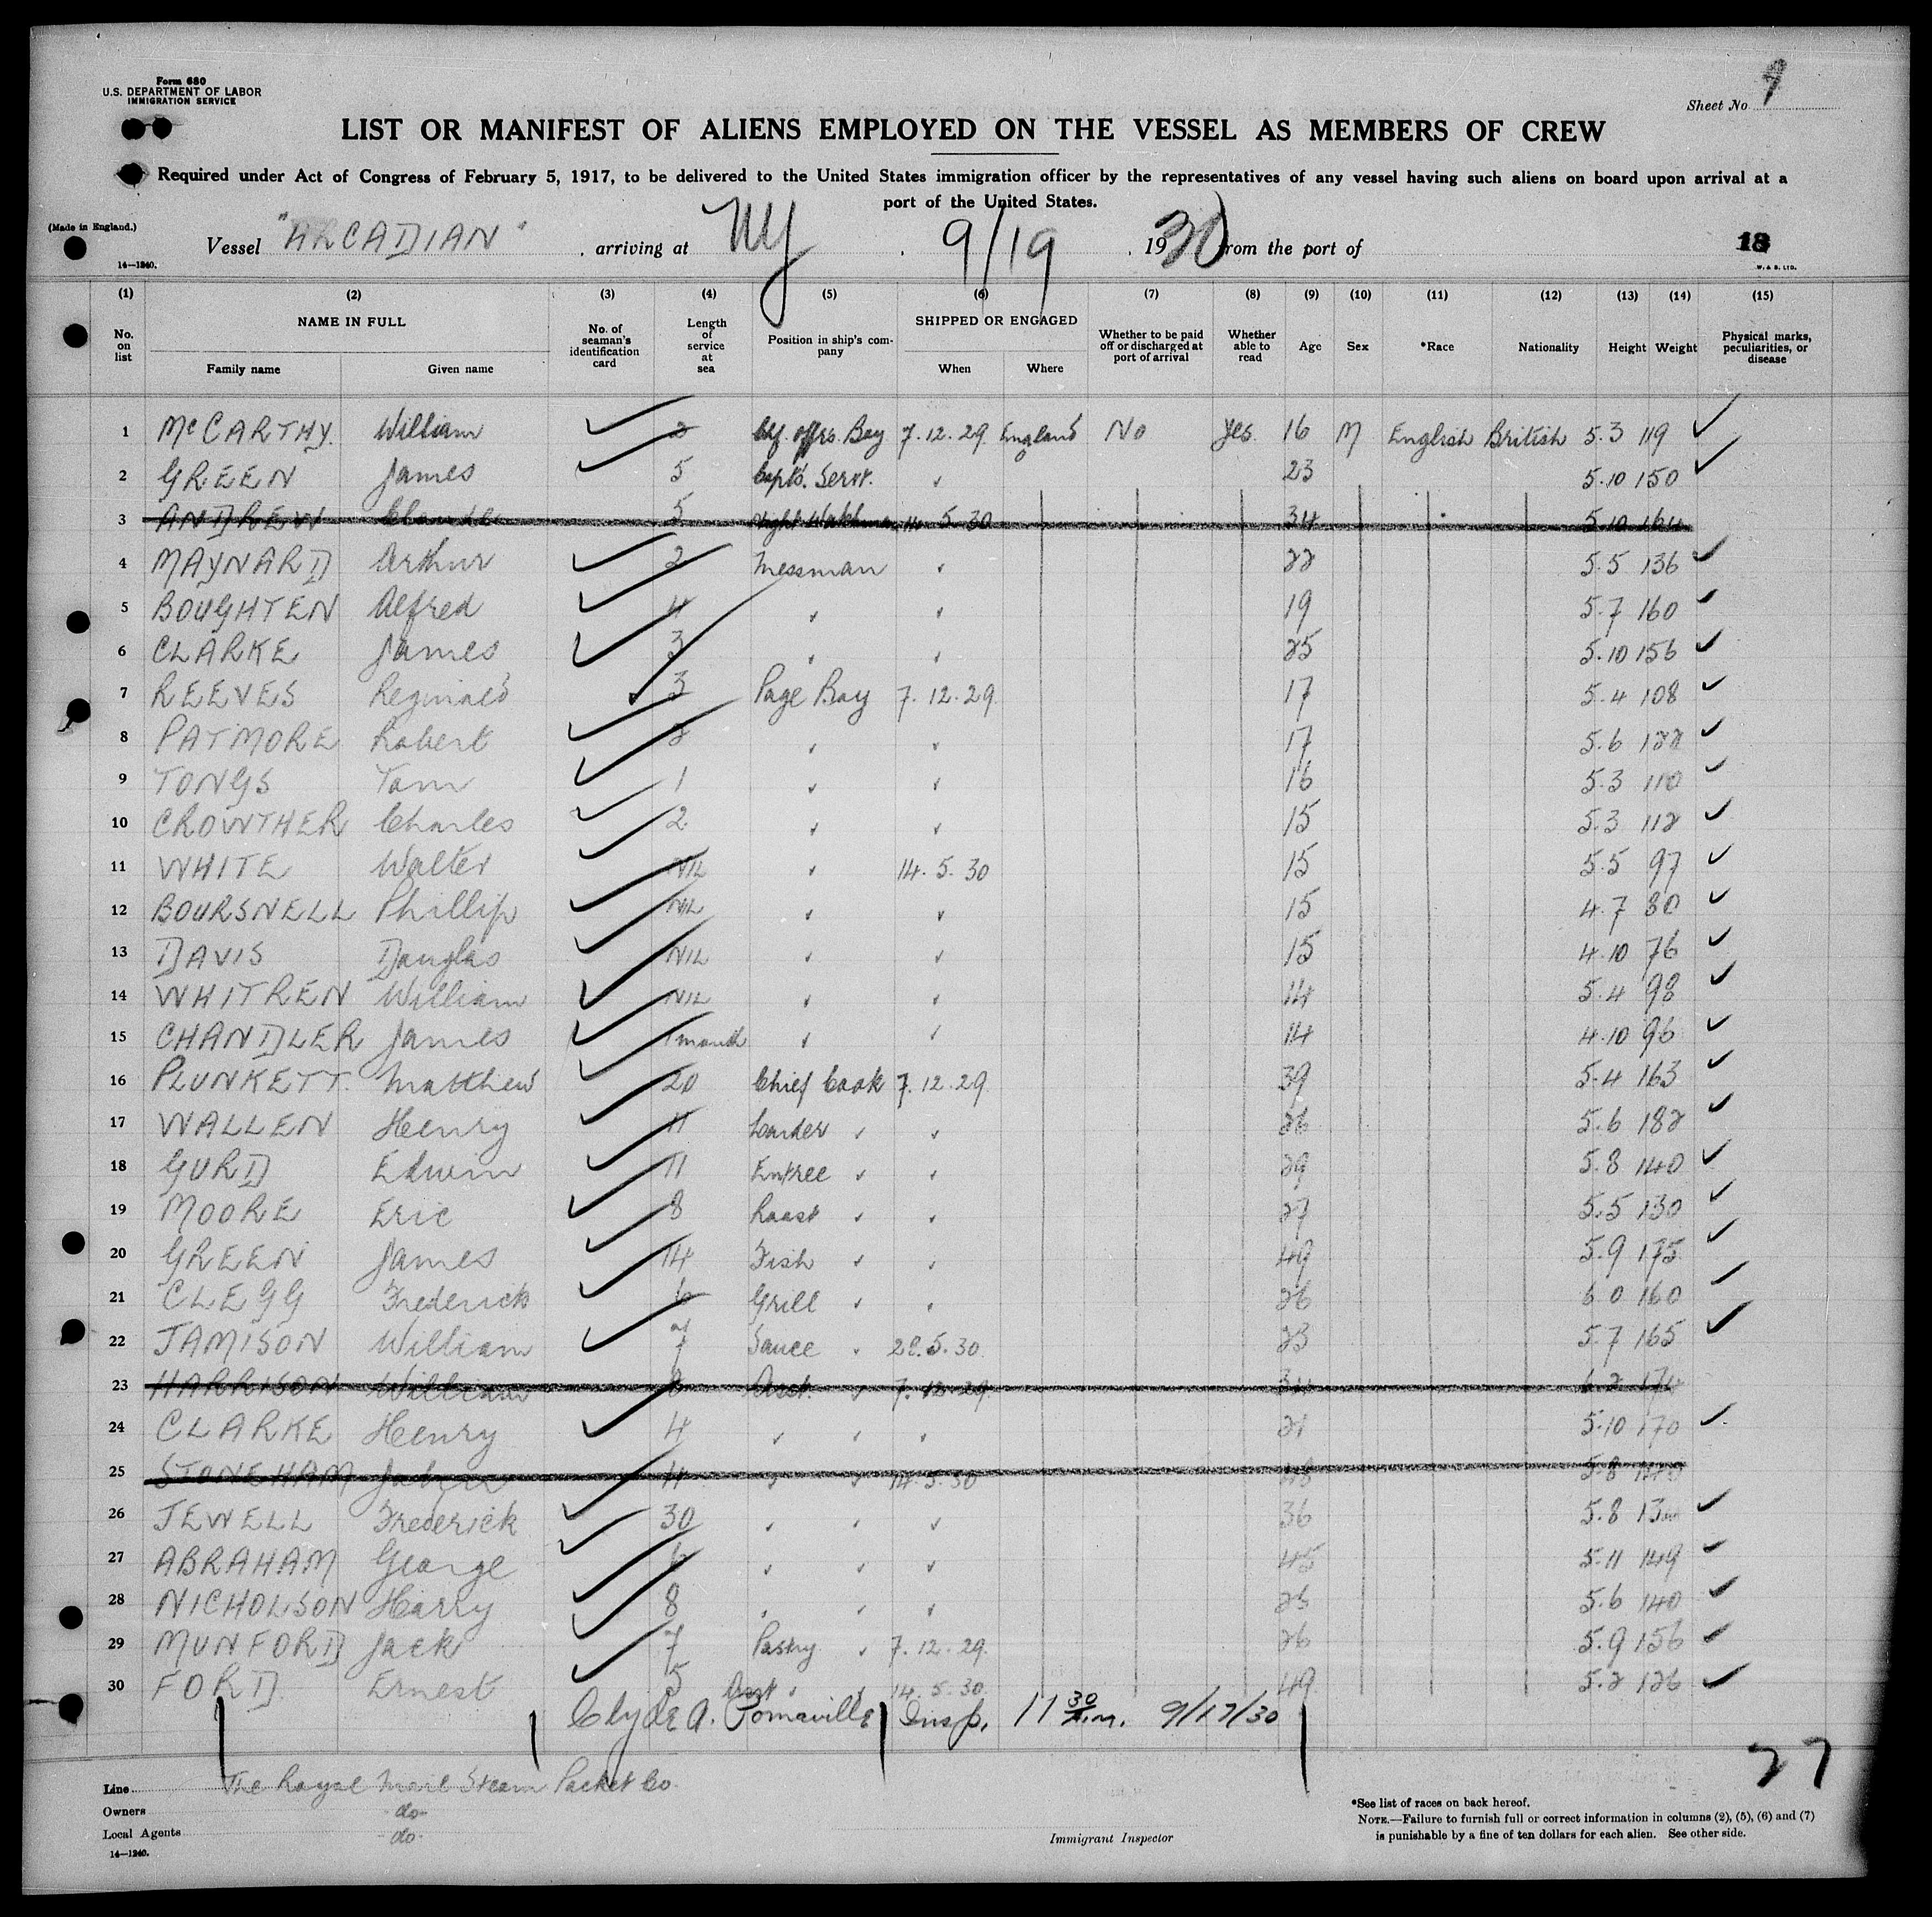 Form 680
U.S. DEPARTMENT OF LABOR
IMMIGRATION SERVICE
Sheet No. 9
LIST OR MANIFEST OF ALIENS EMPLOYED ON THE VESSEL AS MEMBERS OF CREW
Required under Act of Congress of February 5, 1917, to be delivered to the United States immigration officer by the representatives of any vessel having such aliens on board upon arrival at a
port of the United States.
(Made in England.)
Vessel "ARCADIAN" , arriving at NY , 9/19 , 1930 from the port of
14—1240.
W. & S. LTD.
(1) (2) (3) (4) (5) (6) (7) (8) (9) (10) (11) (12) (13) (14) (15)
No. on list NAME IN FULL Family name Given name No. of seaman's identification card Length of service at sea Position in ship's company SHIPPED OR ENGAGED When Where Whether to be paid off or discharged at port of arrival Whether able to read Age Sex *Race Nationality Height Weight Physical marks, peculiarities, or disease
1 McCARTHY. William offrs. Boy 7.12.29 England No yes. 16 M English British 5.3 119 ✓
2 GREEN James 5 Capts. Servt. ✓ 23 5.10 150 ✓
3 ANDREW Claude 5 Night Watchman 14.5.30 34 5.10 164
4 MAYNARD Arthur 2 Messman ✓ 22 5.5 136 ✓
5 BOUGHTEN Alfred 4 ✓ ✓ 19 5.7 160 ✓
6 CLARKE James 3 ✓ ✓ 25 5.10 156 ✓
7 REEVES Reginald 3 Page Boy 7.12.29 17 5.4 108 ✓
8 PATMORE Robert 2 ✓ ✓ 17 5.6 122 ✓
9 TONGS Tom 1 ✓ ✓ 16 5.3 110 ✓
10 CROWTHER Charles 2 ✓ ✓ 15 5.3 112 ✓
11 WHITE Walter NIL ✓ 14.5.30 15 5.5 97 ✓
12 BOURSNELL Phillip NIL ✓ ✓ 15 4.7 80 ✓
13 DAVIS Douglas NIL ✓ ✓ 15 4.10 76 ✓
14 WHITREN William NIL ✓ ✓ 14 5.4 98 ✓
15 CHANDLER James 1 month ✓ ✓ 14 4.10 96 ✓
16 PLUNKETT. Matthew 20 Chief Cook 7.12.29 39 5.4 163 ✓
17 WALLEN Henry 11 Larder ✓ ✓ 26 5.6 182 ✓
18 GURD Edwin 11 Entree ✓ ✓ 29 5.8 140 ✓
19 MOORE Eric 8 Roast ✓ ✓ 27 5.5 130 ✓
20 GREEN James 14 Fish ✓ ✓ 49 5.9 175 ✓
21 CLEGG Frederick 6 Grill ✓ ✓ 26 6.0 160 ✓
22 JAMISON William 7 Sauce ✓ 5.30 23 5.7 165 ✓
23 HARRISON William Asst. ✓ 7.12.29 34 6.2
24 CLARKE Henry 4 ✓ ✓ ✓ 21 5.10 170 ✓
25 STONEHAM John ✓ ✓ 14.5.30 5.8
26 JEWELL Frederick 30 ✓ ✓ ✓ 36 5.8 ✓
27 ABRAHAM George 6 ✓ ✓ ✓ 45 5.11 149 ✓
28 NICHOLSON Harry 8 ✓ ✓ ✓ 5.6 140 ✓
29 MUNFORD Jack 7 Pastry ✓ 7.12.29 26 5.9 156 ✓
30 FORD Ernest 5 Asst ✓ ✓ 14.5.30 49 5.2 126 ✓
Clyde A. Pomaville Insp. 11 30 A.m. 9/17/30
27
Line The Royal Mail Steam Packet Co.
Owners do
Local Agents do
14—1240.
Immigrant Inspector
*See list of races on back hereof.
NOTE.—Failure to furnish full or correct information in columns (2), (5), (6) and (7)
is punishable by a fine of ten dollars for each alien. See other side.